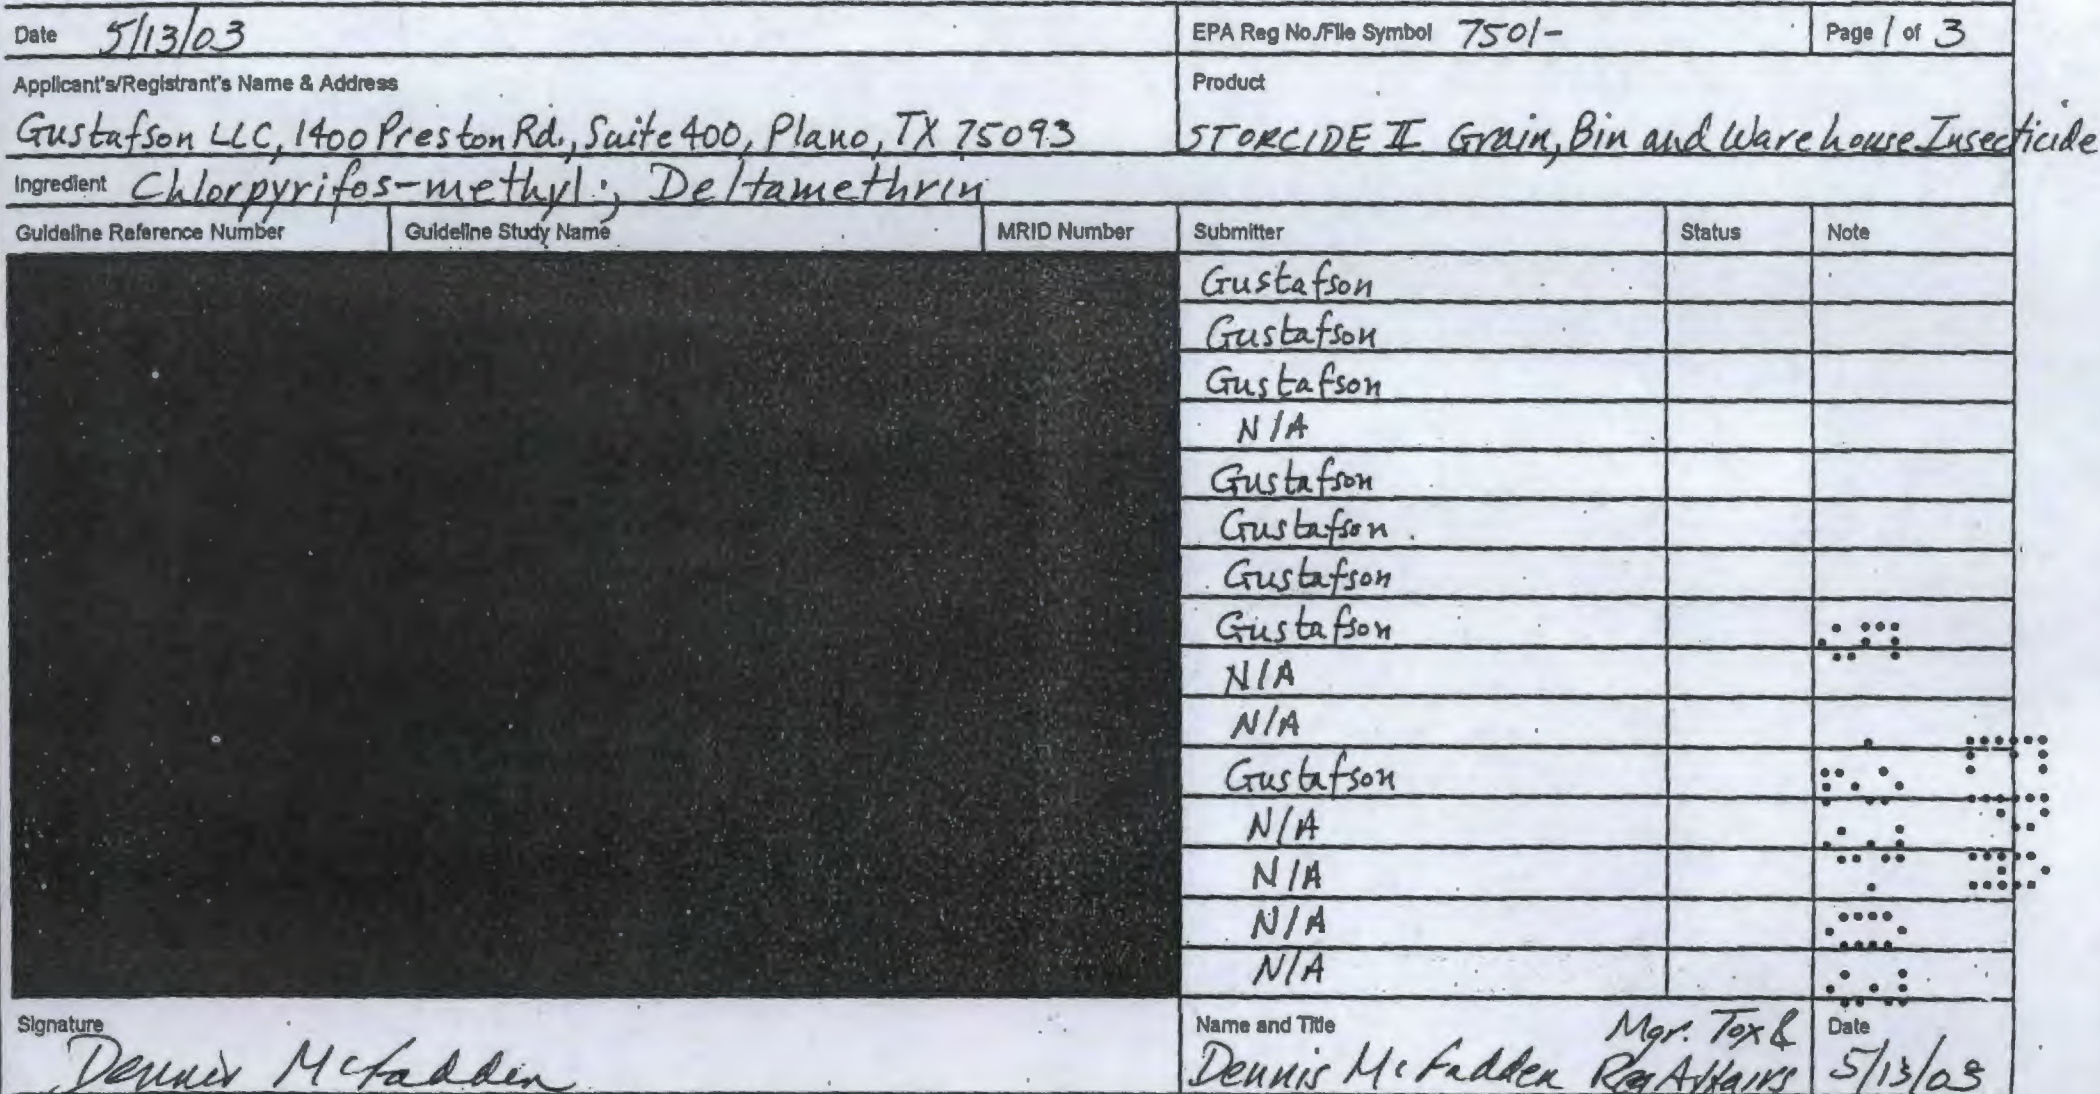 Date 5/13/03 EPA Reg No./File Symbol 7501- Page 1 of 3
Applicant's/Registrant's Name & Address Product
Gustafson LLC, 1400 Preston Rd., Suite 400, Plano, TX 75093 STORCIDE II Grain, Bin and Warehouse Insecticide
Ingredient Chlorpyrifos-methyl; Deltamethrin
Guideline Reference Number Guideline Study Name MRID Number Submitter Status Note
Gustafson
Gustafson
Gustafson
N/A
Gustafson
Gustafson
Gustafson
Gustafson
N/A
N/A
Gustafson
N/A
N/A
N/A
N/A
Signature Name and Title Mgr. Tox & Date
Dennis McFadden Dennis McFadden Reg Affairs 5/13/03